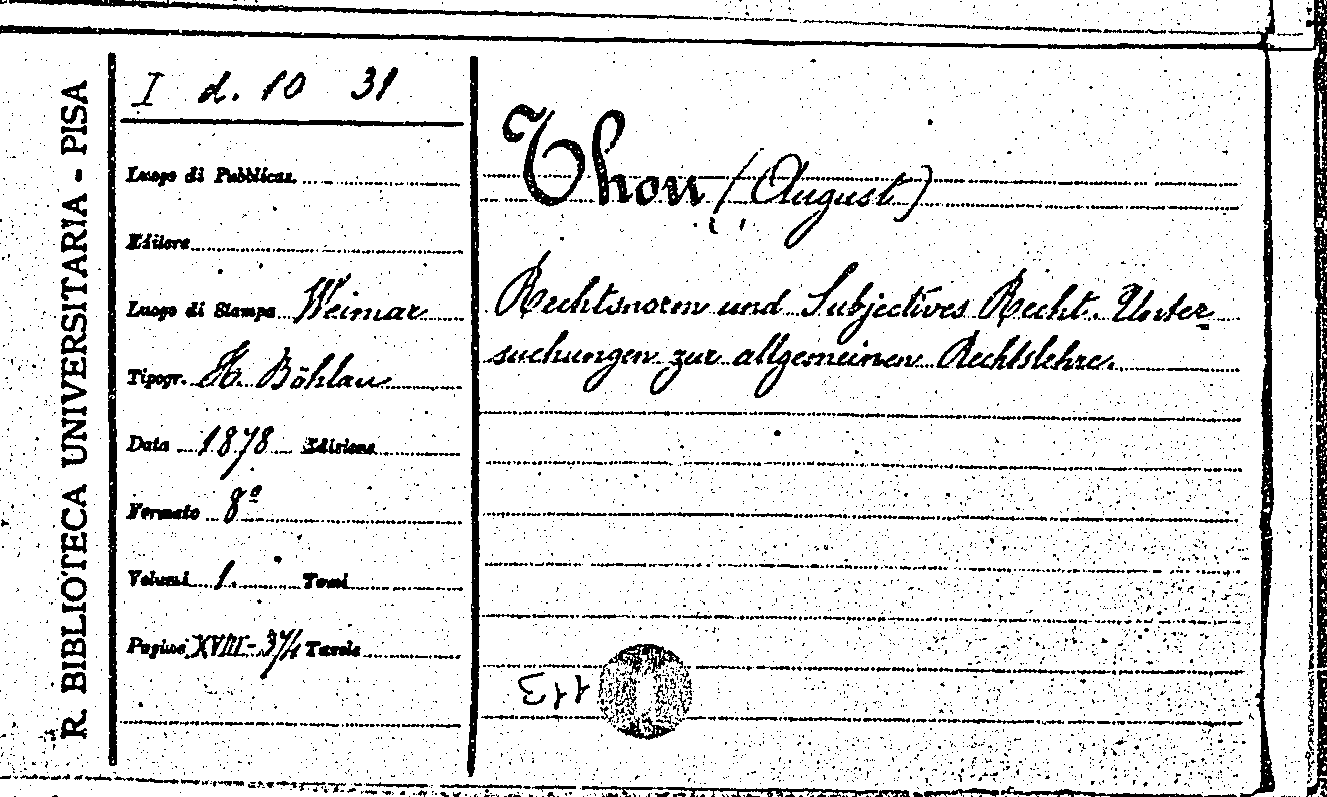 R. BIBLIOTECA UNIVERSITARIA - PISA
I d. 10 31
Luogo di Pubblicaz.
Editore
Luogo di Stampa Weimar
Tipogr. H. Böhlau
Data 1878 Edizione
Formato 8º
Volumi 1. Tomi
Pagine XVIII-374 Tavole
Thon (August)
Rechtsnorm und Subjectives Recht. Unter-
suchungen zur allgemeinen Rechtslehre.